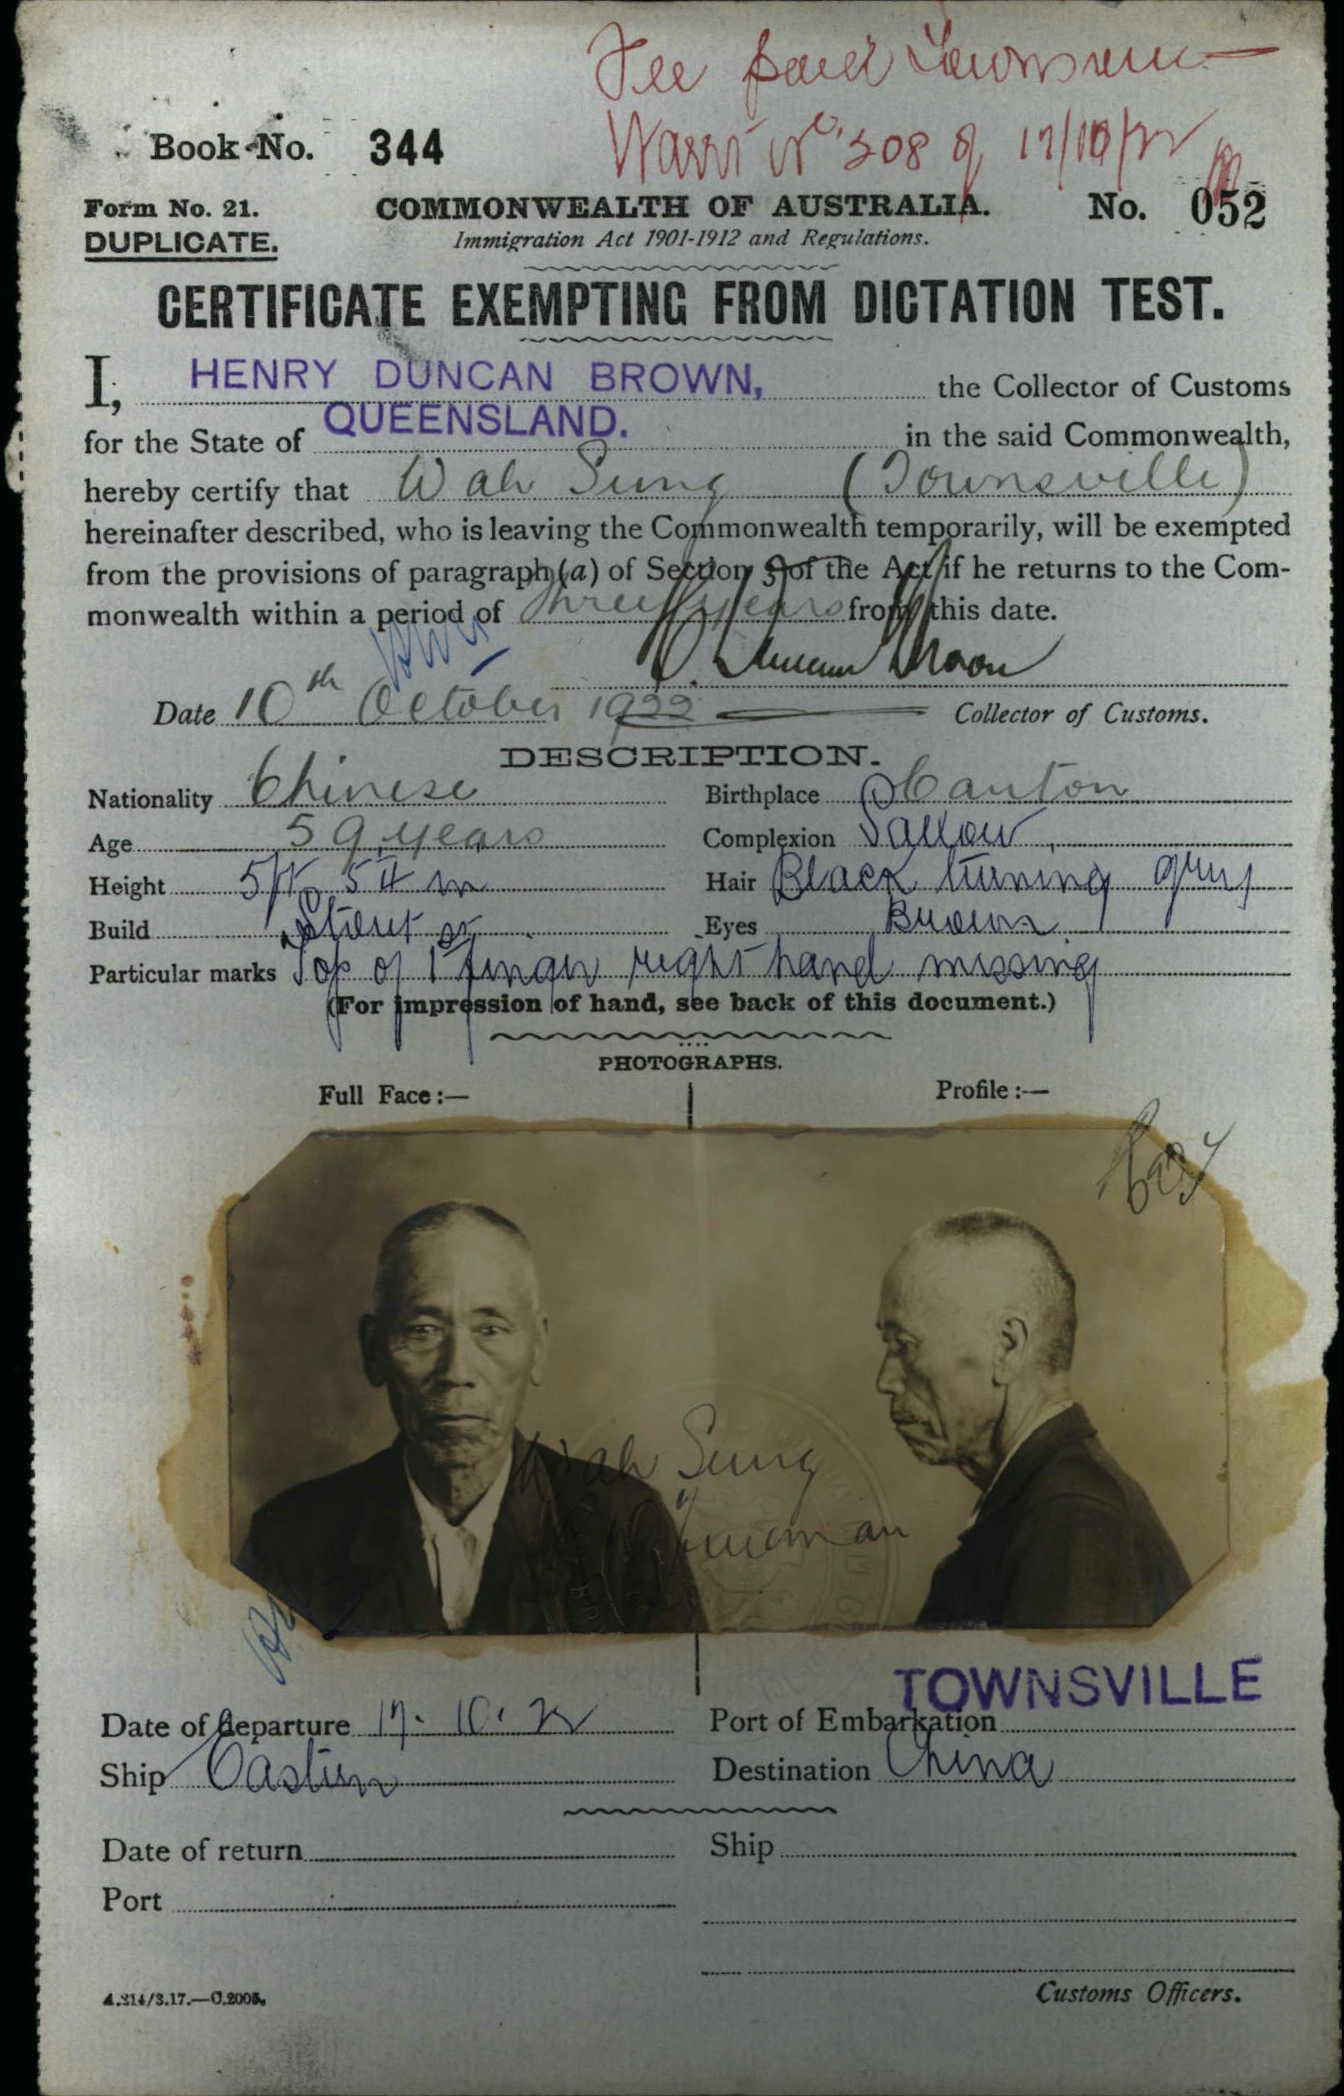 Fee paid Townsville
Warrt No 208 of 17/10/22
Book No. 344
Form No. 21.
COMMONWEALTH OF AUSTRALIA.
No. 052
DUPLICATE.
Immigration Act 1901-1912 and Regulations.
CERTIFICATE EXEMPTING FROM DICTATION TEST.
I, HENRY DUNCAN BROWN, the Collector of Customs
for the State of QUEENSLAND. in the said Commonwealth,
hereby certify that Wah Sung (Townsville)
hereinafter described, who is leaving the Commonwealth temporarily, will be exempted
from the provisions of paragraph (a) of Section 3 of the Act if he returns to the Com-
monwealth within a period of three years from this date.
H. Duncan Brown
Date 10th October 1922 Collector of Customs.
DESCRIPTION.
Nationality Chinese Birthplace Canton
Age 59 years Complexion Sallow
Height 5ft 5¼ in Hair Black turning grey
Build Stout Eyes Brown
Particular marks Top of 1st finger right hand missing
(For impression of hand, see back of this document.)
PHOTOGRAPHS.
Full Face:— Profile:—
Wah Sung
Date of departure 17.10.22 Port of Embarkation TOWNSVILLE
Ship Eastern Destination China
Date of return Ship
Port
A.214/3.17.—C.2005.
Customs Officers.